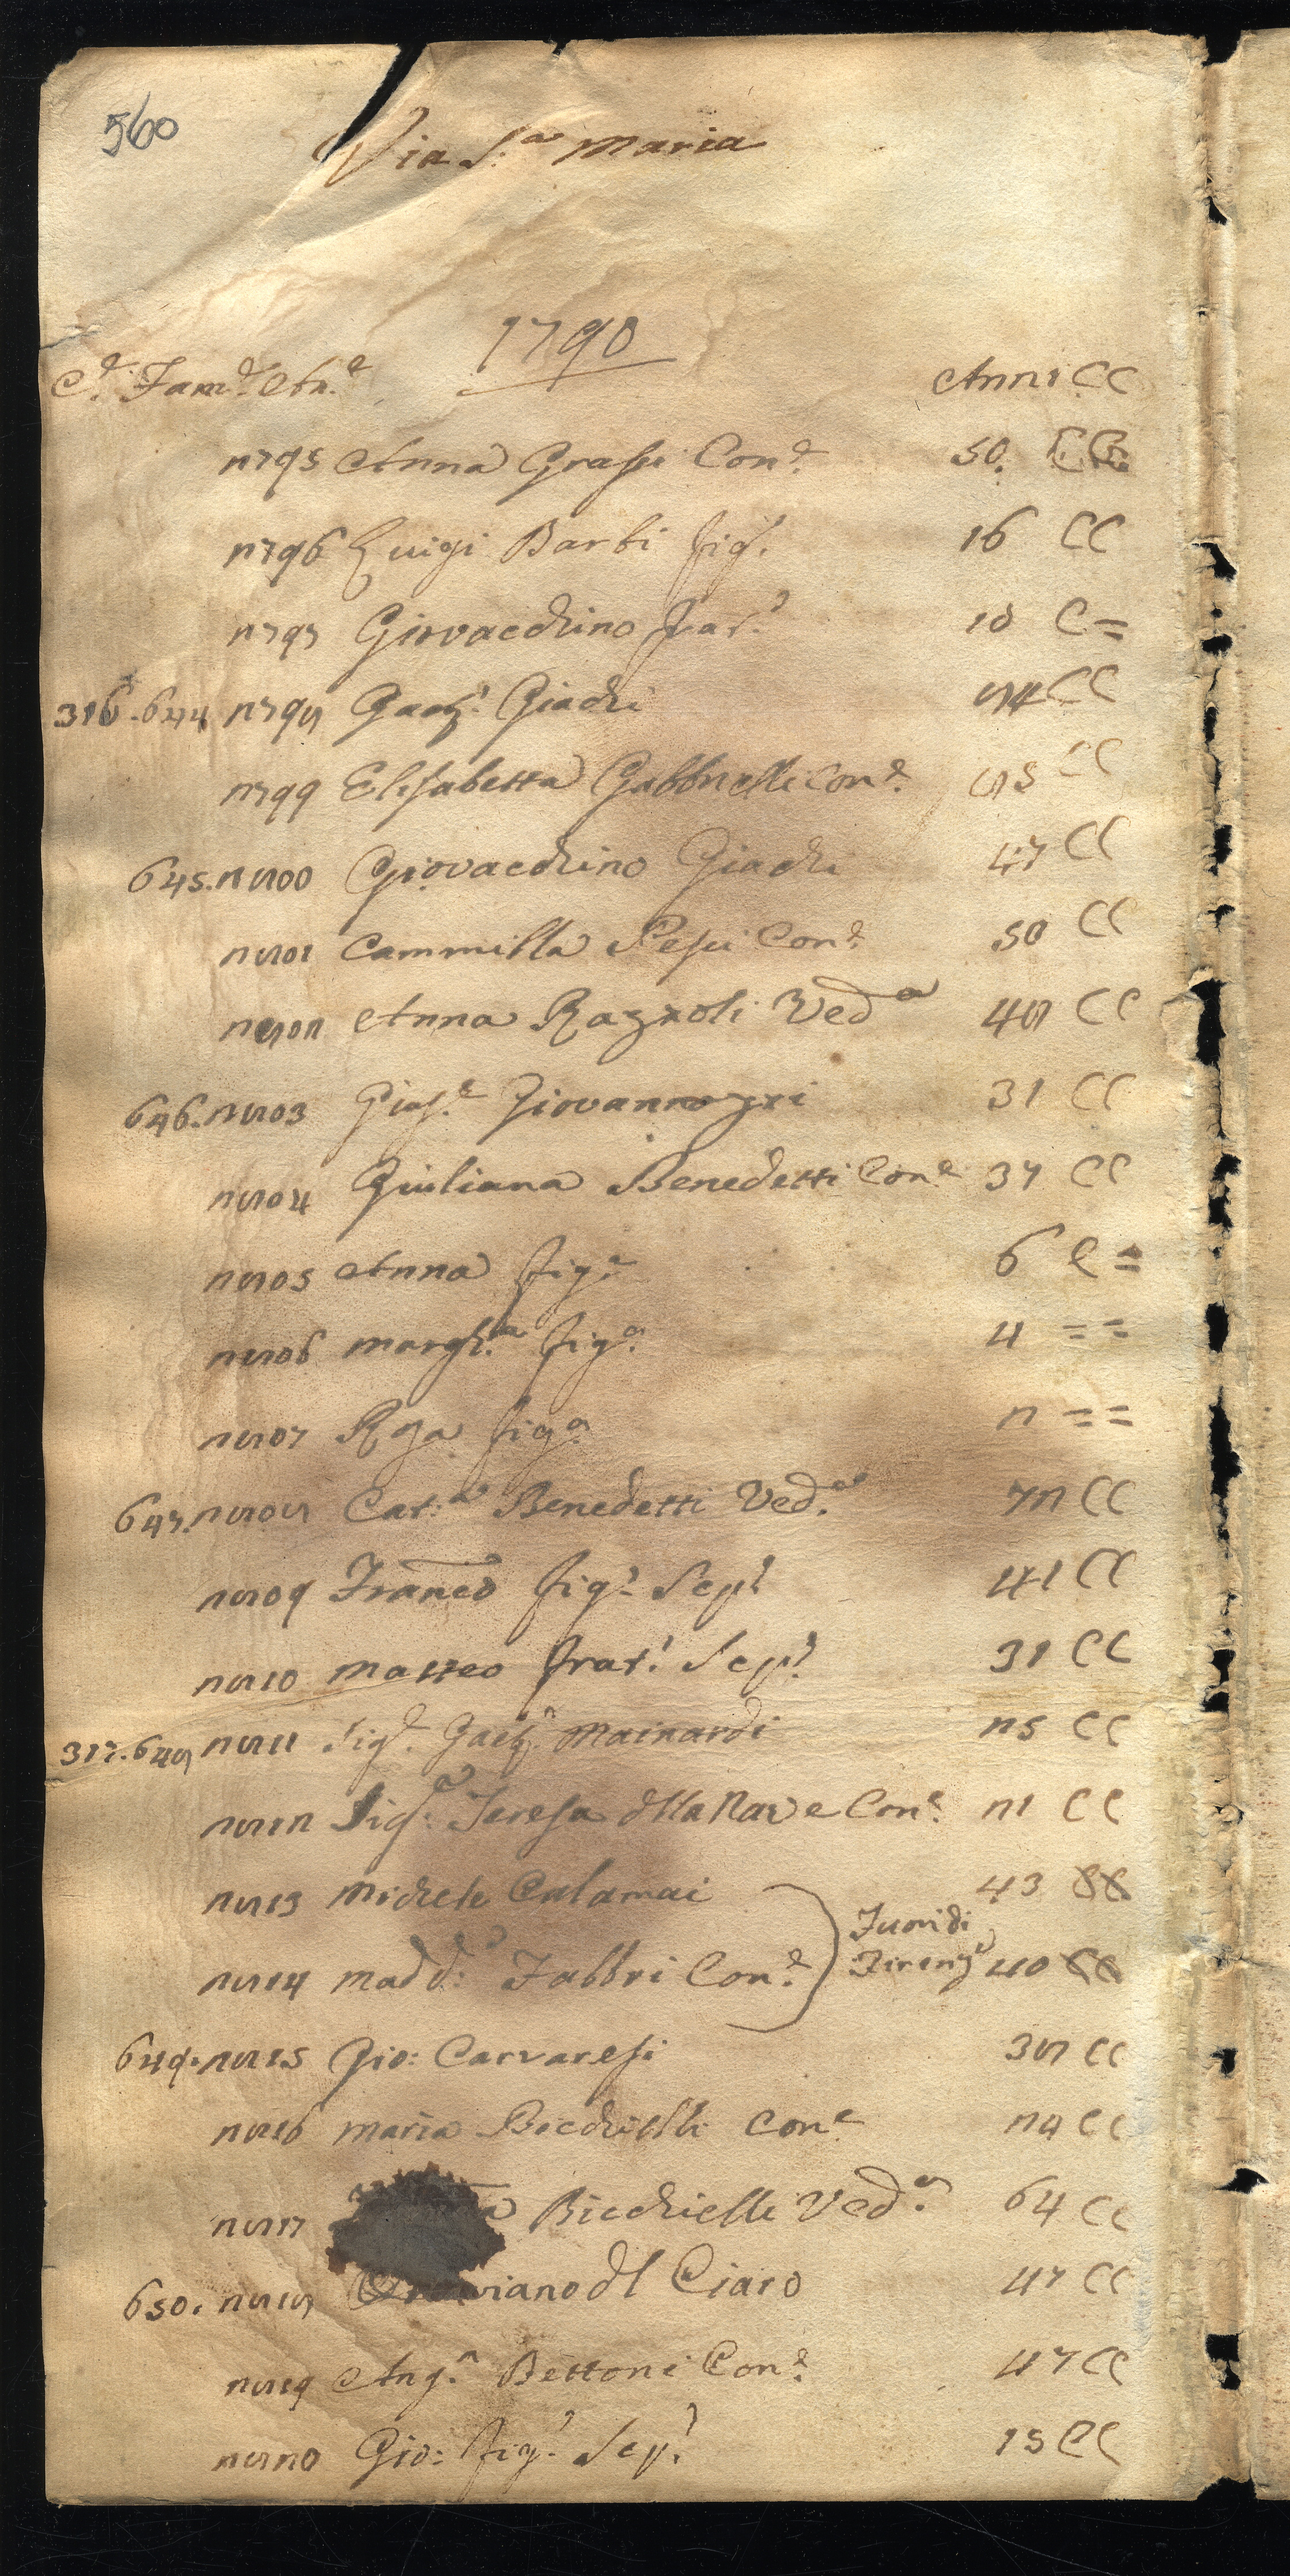 560
Via S.a Maria
1790
C.e Fam.e An.e Anni CC
2795 Anna Grassi Con.e 50. CC
2796 Luigi Barbi fig.o 16 CC
2797 Giovacchino frat.o 10 C=
316. 644 2798 Gaet.o Giachi 84 CC
2799 Elisabetta Gabbrielli Con.e 85 CC
645. 2800 Giovacchino Giachi 47 CC
2801 Cammilla Pepi Con.e 50 CC
2802 Anna Razzoli Ved.a 48 CC
646. 2803 Gius.e Giovannozzi 31 CC
2804 Giuliana Benedetti Con.e 37 CC
2805 Anna fig.a 6 C=
2806 Margh.a fig.a 4 = =
2807 Rosa fig.a 2 = =
647. 2808 Cat.a Benedetti Ved.a 72 CC
2809 Franco fig.o Sep.o 41 CC
2810 Matteo frat.o Sep.o 31 CC
317. 648 2811 Sig.e Gaet.o Mainardi 25 CC
2812 Sig.a Teresa della Nave Con.e 21 CC
2813 Michele Calamai 43 CC
Fuori di
2814 Madd.a Fabbri Con.e Firenze 40 CC
649. 2815 Gio: Carraresi 38 CC
2816 Maria Bicchielli Con.e 24 CC
2817 Bicchielli Ved.a 64 CC
650. 2818 Ottaviano del Ciaro 47 CC
2819 Ang.a Bettoni Con.e 47 CC
2820 Gio: fig.o Sep.o 15 CC